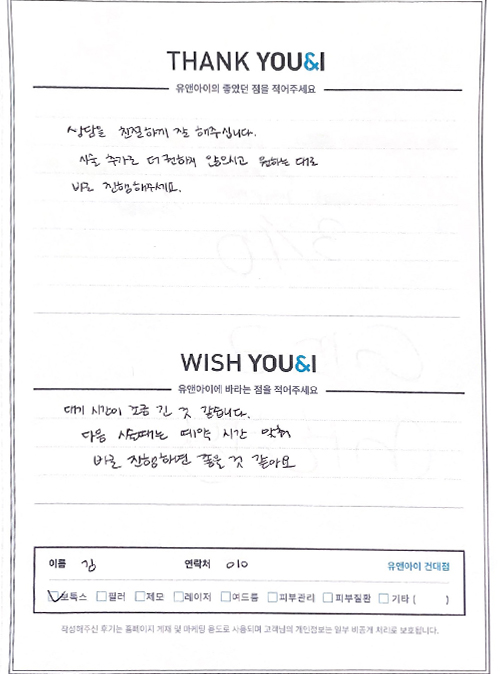 THANK YOU&I
유앤아이의 좋았던 점을 적어주세요
상담을 친절하게 잘 해주십니다.
시술 추가로 더 권하지 않으시고 원하는 대로
바로 진행해주세요.
WISH YOU&I
유앤아이에 바라는 점을 적어주세요
대기 시간이 조금 긴 것 같습니다.
다음 시술때는 예약 시간 맞춰
바로 진행하면 좋을 것 같아요
이름 김 연락처 010 유앤아이 건대점
보톡스 필러 제모 레이저 여드름 피부관리 피부질환 기타 ( )
작성해주신 후기는 홈페이지 게재 및 마케팅 용도로 사용되며 고객님의 개인정보는 일부 비공개 처리로 보호됩니다.